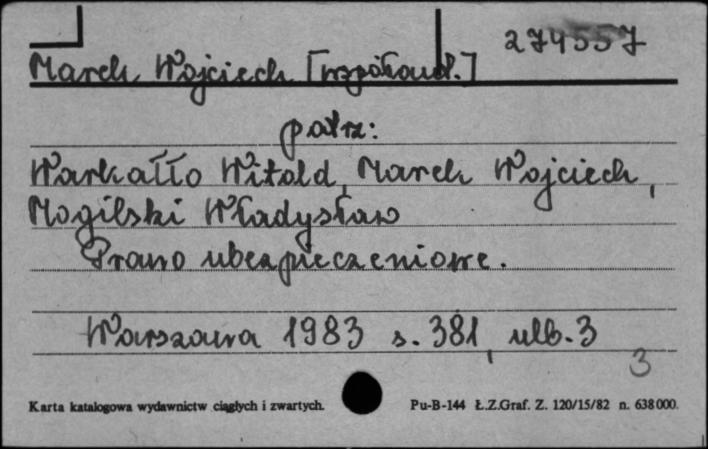 274557
Marek Wojciech [współaut.]
patrz:
Warkałło Witold, Marek Wojciech,
Mogilski Władysław
Prawo ubezpieczeniowe.
Warszawa 1983 s. 381, ulb. 3
3
Karta katalogowa wydawnictw ciągłych i zwartych. Pu-B-144 Ł.Z.Graf. Z. 120/15/82 n. 638000.